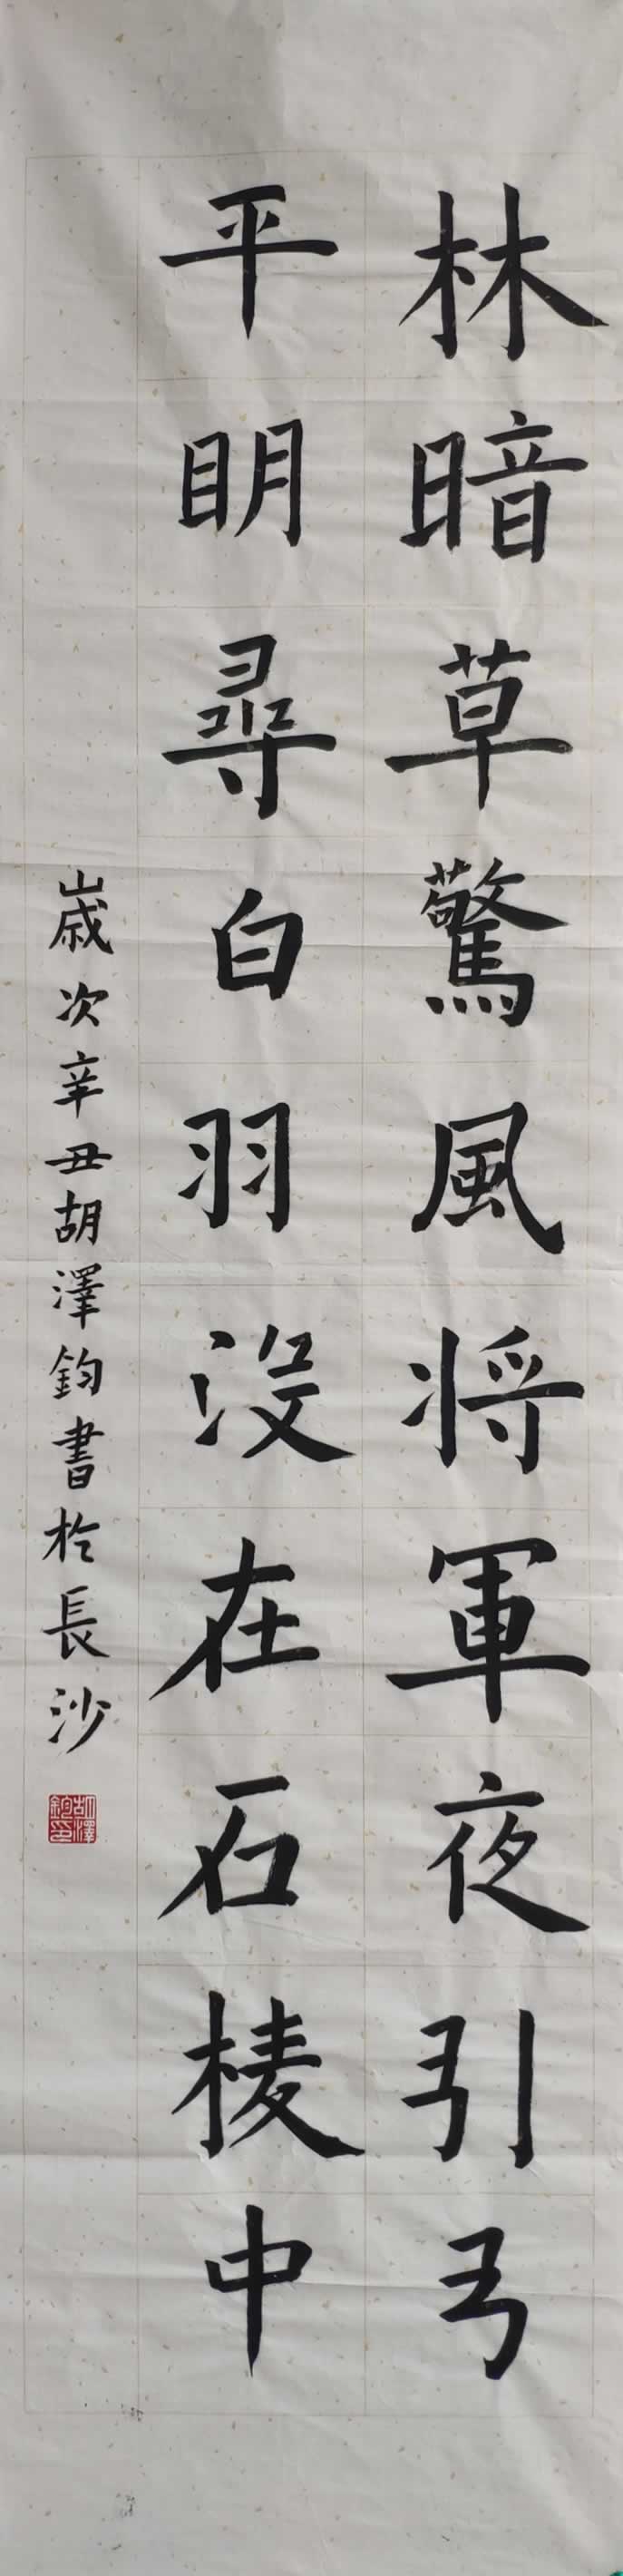 林暗草驚風將軍夜引弓
平明尋白羽沒在石棱中
歲次辛丑胡澤鈞書於長沙
胡澤鈞印